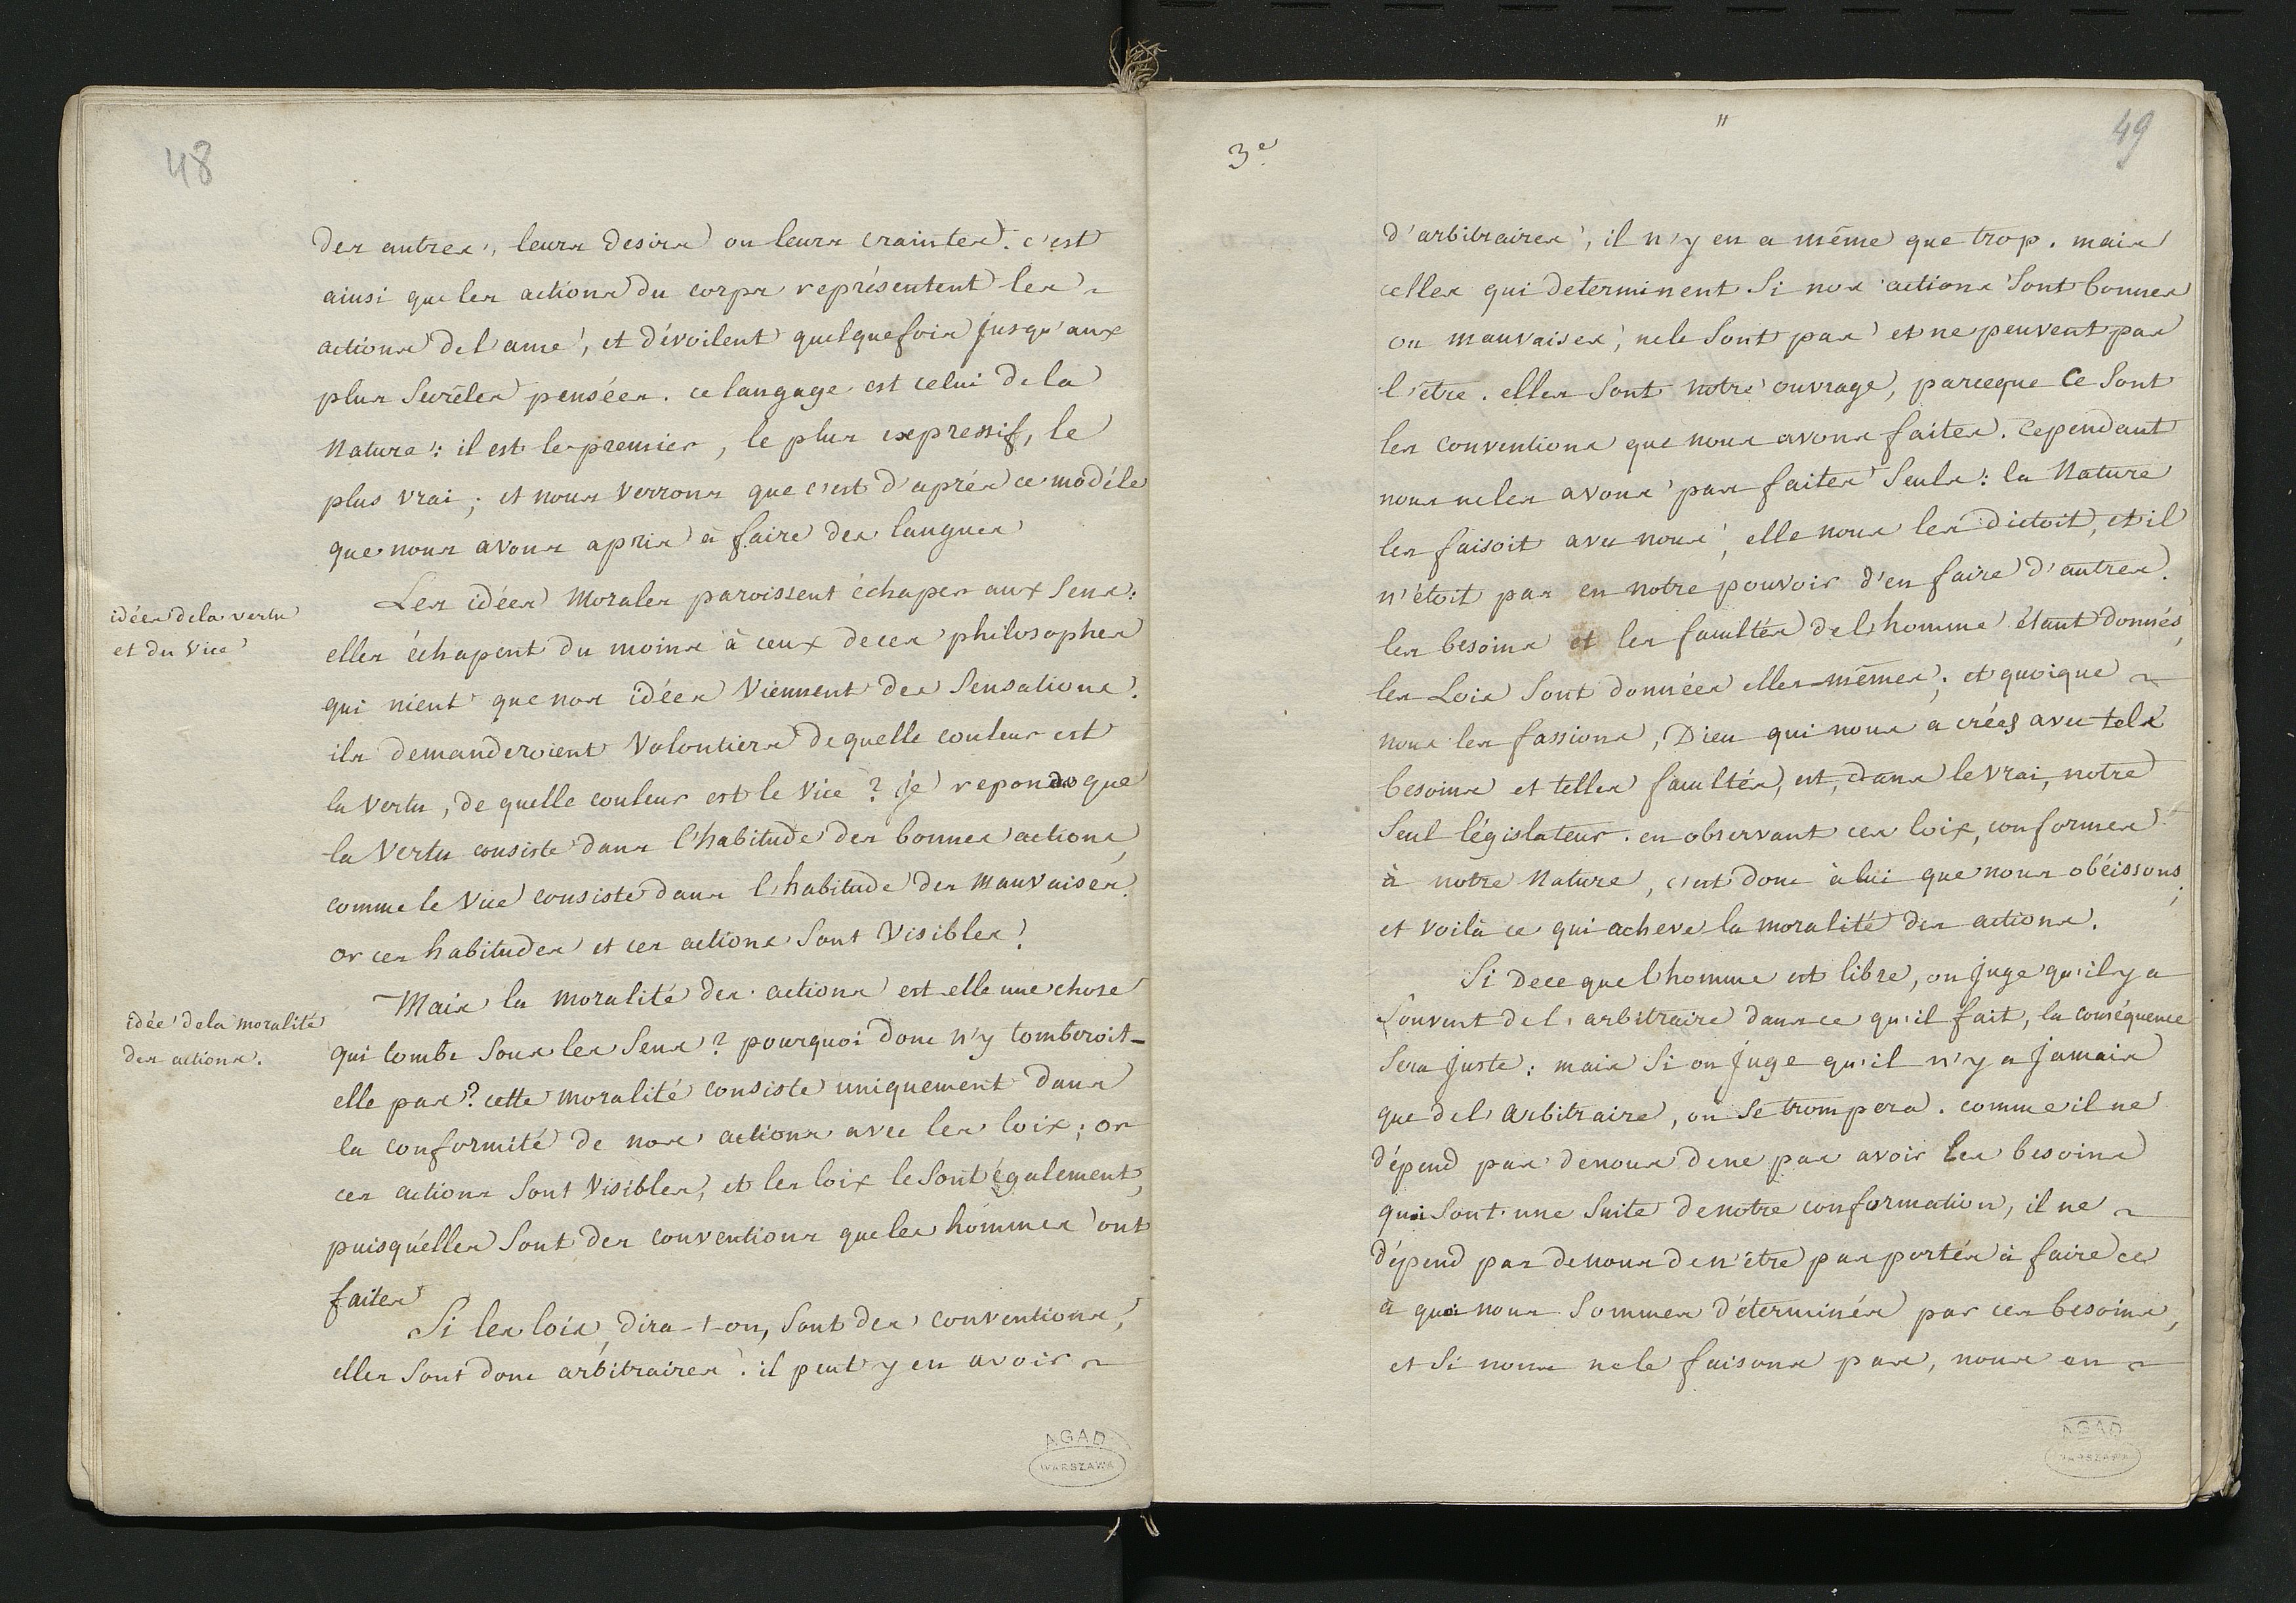 48
des autres, leurs desirs ou leurs craintes. c'est
ainsi que les actions du corps représentent les
actions de l'ame, et dévoilent quelquefois jusqu'aux
plus secrêtes pensées. ce langage est celui de la
Nature: il est le premier, le plus expressif, le
plus vrai; et nous verrons que c'est d'après ce modéle
que nous avons apris à faire des langues
idées de la vertu
et du Vice
Les idées Morales paroissent échaper aux sens:
elles échapent du moins à ceux de ces philosophes
qui nient que nos idées viennent des sensations.
ils demanderoient Volontiers de quelle couleur est
la vertu, de quelle couleur est le vice? je reponds que
la vertu consiste dans l'habitude des bonnes actions,
comme le vice consiste dans l'habitude des mauvaises.
or ces habitudes et ces actions sont visibles.
idée de la moralité
des actions.
Mais la moralité des actions est elle une chose
qui tombe sous les sens? pourquoi donc n'y tomberoit-
elle pas? cette moralité consiste uniquement dans
la conformité de nos actions avec les loix; or
ces actions sont visibles, et les loix le sont également,
puisqu'elles sont des conventions que les hommes ont
faites
Si les loix, dira-t-on, sont des conventions,
elles sont donc arbitraires. il peut y en avoir
3e.
"
49
d'arbitraires, il n'y en a même que trop. mais
celles qui determinent si nos actions sont bonnes
ou mauvaises, ne le sont pas et ne peuvent pas
l'être. elles sont notre ouvrage, parceque ce sont
les conventions que nous avons faites. Cependant
nous ne les avons pas faites seuls: la Nature
les faisoit avec nous, elle nous les dictoit, et il
n'étoit pas en notre pouvoir d'en faire d'autres.
les besoins et les facultés de l'homme étant donnés,
les Loix sont données elles-mêmes; et quoique
nous les fassions, Dieu qui nous a créés avec tels
besoins et telles facultés, est, dans le vrai, notre
seul législateur. en observant ces loix, conformes
à notre Nature, c'est donc à lui que nous obéissons;
et voilà ce qui acheve la moralité des actions.
Si de ce que l'homme est libre, on juge qu'il y a
souvent de l'arbitraire dans ce qu'il fait, la conséquence
sera juste: mais si on juge qu'il n'y a jamais
que de l'arbitraire, on se trompera. comme il ne
dépend pas de nous de ne pas avoir les besoins
qui sont une suite de notre conformation, il ne
dépend pas de nous de n'être pas portés à faire ce
à quoi nous sommes déterminés par ces besoins,
et si nous ne le faisons pas, nous en
AGAD
WARSZAWA
AGAD
WARSZAWA